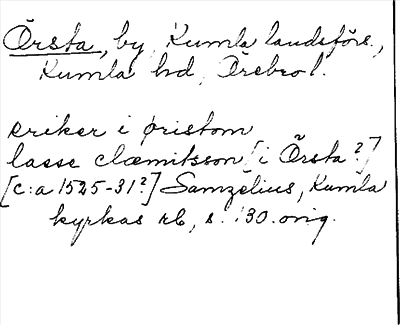 Örsta, by, Kumla landsförs.,
Kumla hd, Örebro l.
eriker i øristom
lasse clæmitsson [i Örsta?]
[c:a 1525-31?] Samzelius, Kumla
kyrkas rb, s. 130. orig.